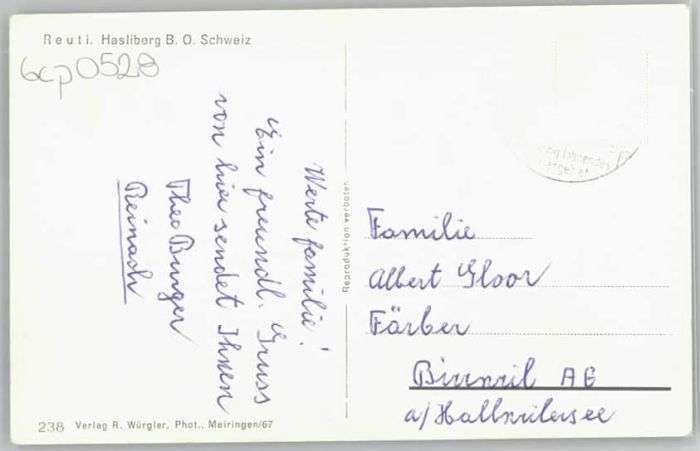 Reuti. Hasliberg B. O. Schweiz
bcp0528
Werte Familie!
Ein freundl. Gruss
von hier sendet Ihnen
Theo Burger
Reinach
Reproduktion verboten
Familie
Albert Gloor
Färber
Birrwil AG
a/Hallwilersee
238 Verlag R. Würgler, Phot., Meiringen/67